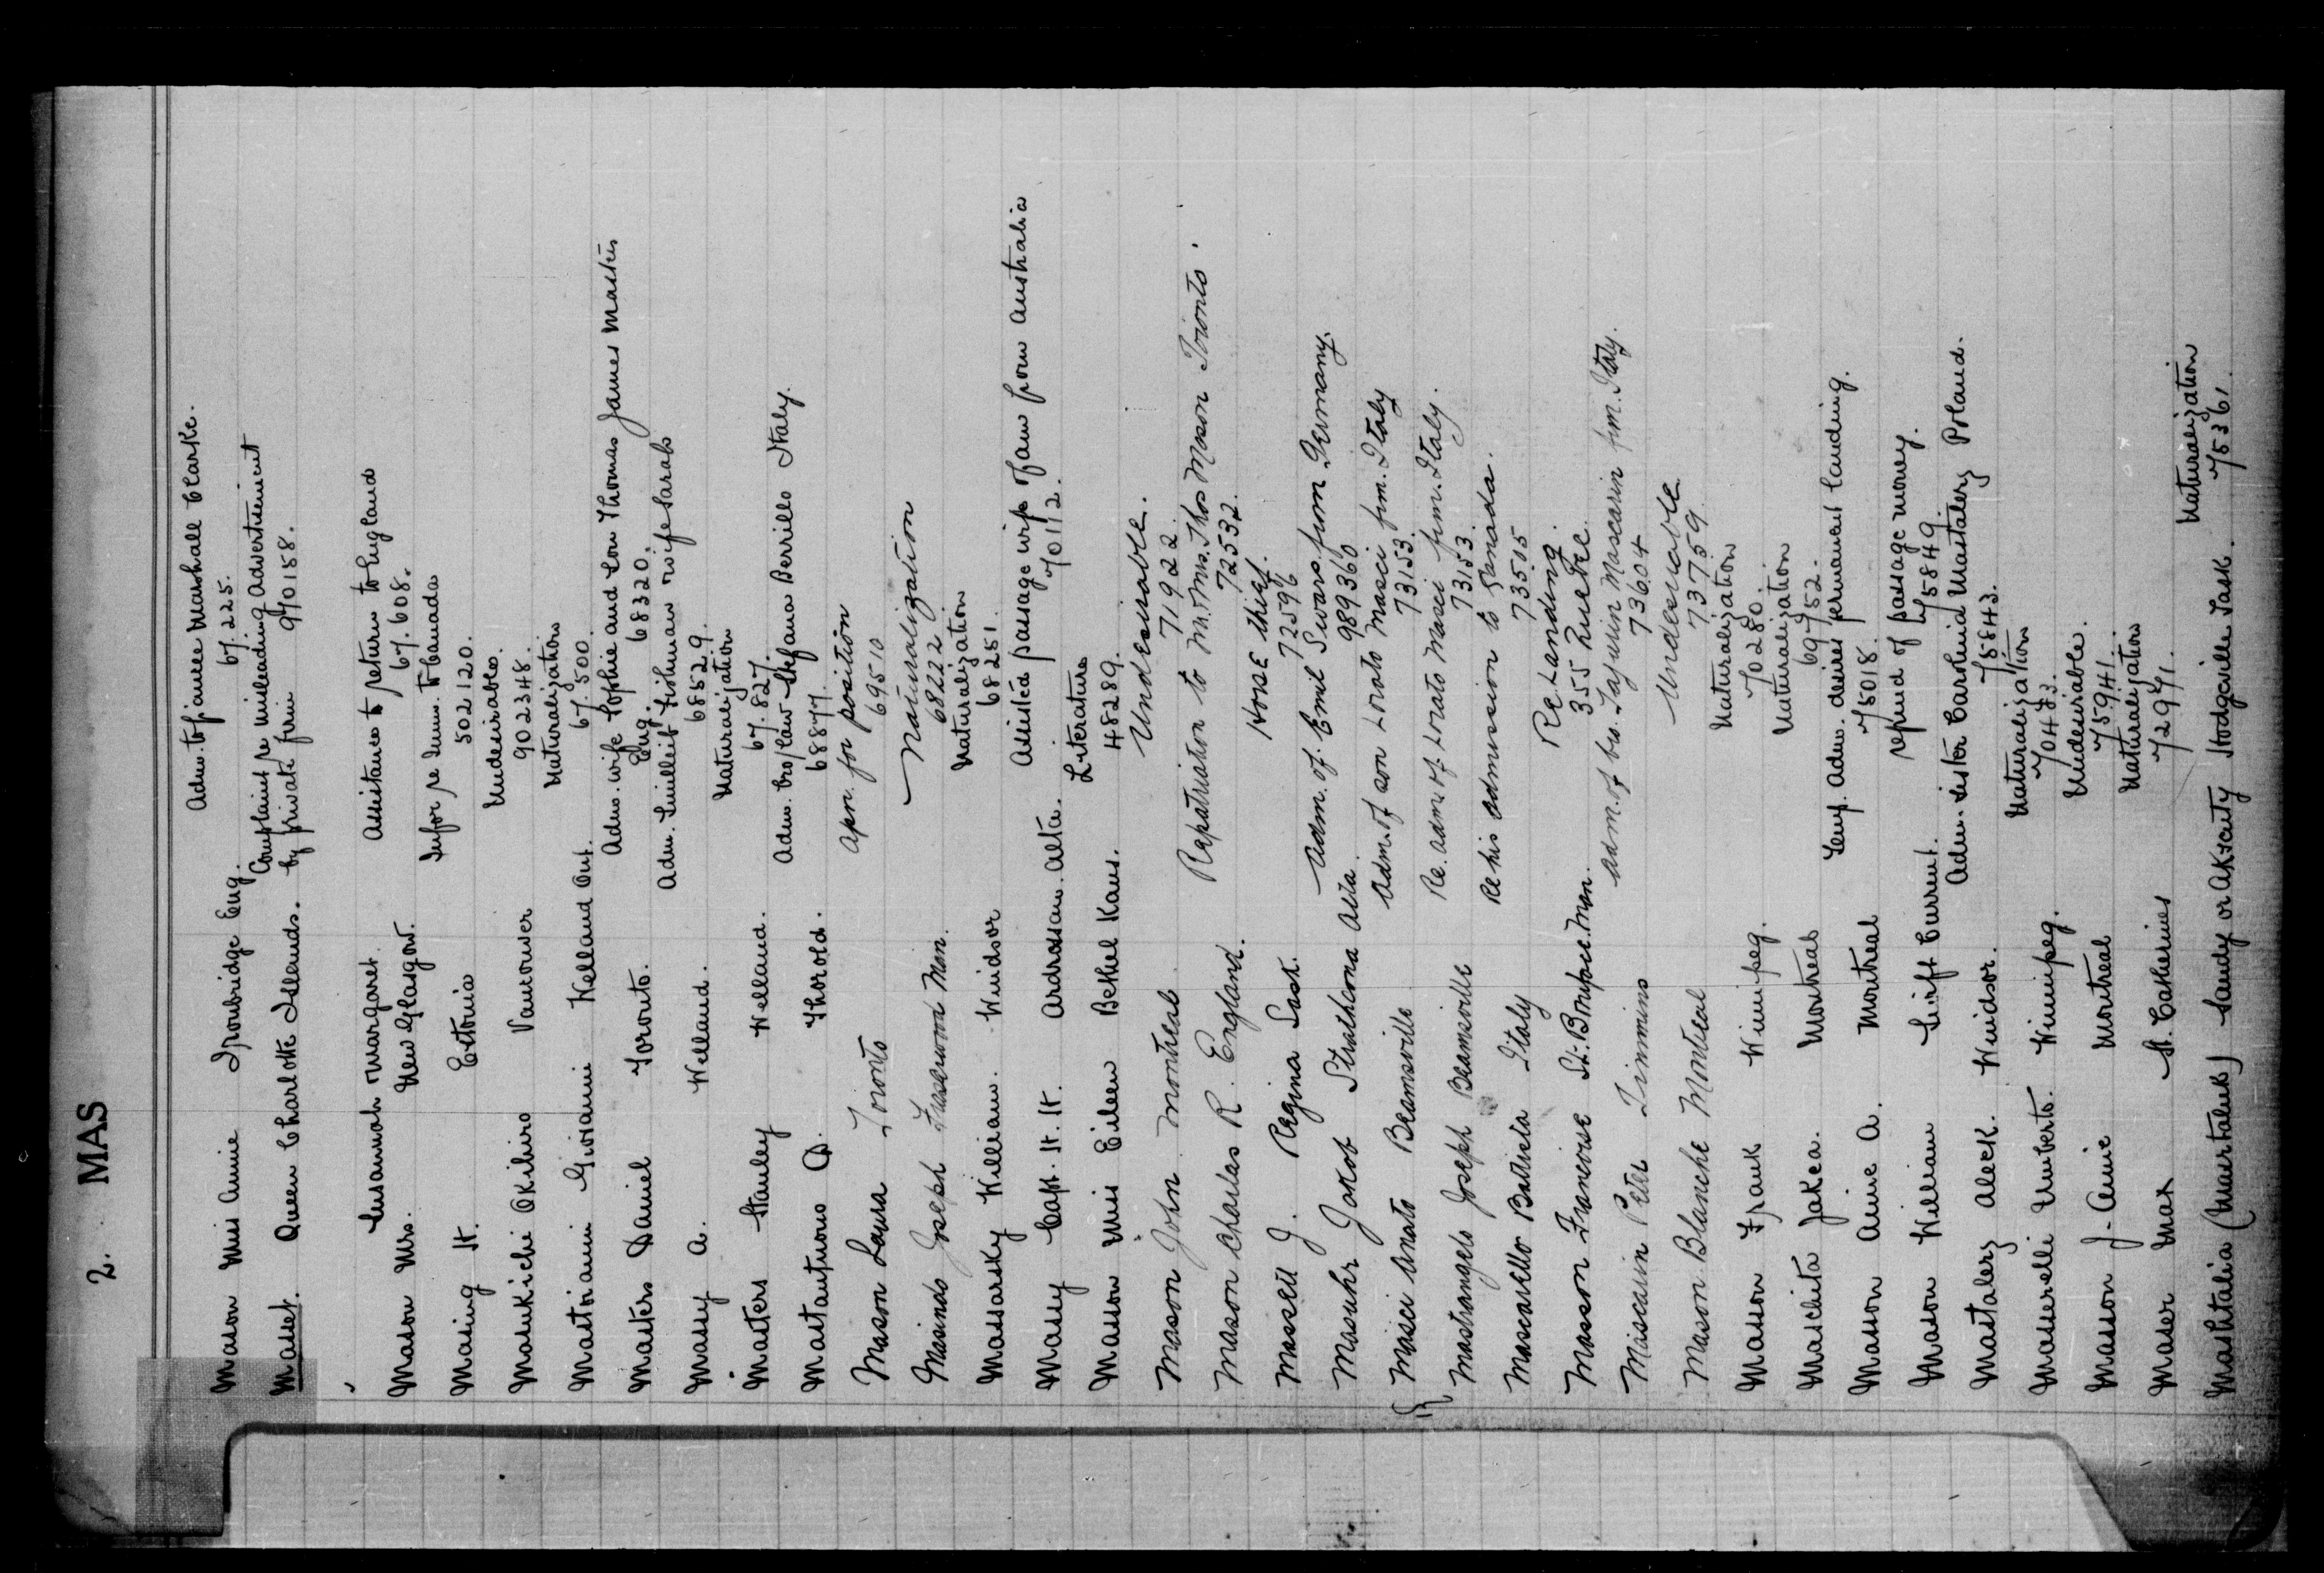 2. MAS
Adm. of fiancee Marshall Clarke.
Mason Miss Annie Ironbridge Eng. 67.225.
Complaint re misleading Advertisement
Masset. Queen Charlotte Islands. by private firm 970158.
Susannah Margaret Assistance to return to England
Mason Mrs. New Glasgow. 67.608.
Infor re Imm. to Canada
Masing H. Estonia 502120.
Undesirables.
Masukichi Akihiro Vancouver 902348.
Naturalization
Mastroianni Giovanni Welland Ont. 67.500.
Adm. wife Sophie and son Thomas James Masters
Masters Daniel Toronto. Eng. 68320.
Adm. Fishman wife Sarah
Massy A. Welland. 68529.
Naturalization
Masters Stanley Welland. 67.827.
Adm. bro/law Stefana Berrillo Italy.
Mastantuono D. Thorold. 68877.
Apn. for position
Mason Laura Toronto 69510
Naturalization
Masindo Joseph Fraserwood Man. 68222
Naturalization
Massarsky William. Windsor 68251.
Assisted passage wife & fam from Australia
Massy Capt. H. H. Ardrossan. Alta. 70112.
Literature
Masson Miss Eileen Bethel Kans. 48289.
Undesirable.
Mason John Montreal 71922.
Repatriation to Mr. & Mrs. Thos Mason Toronto.
Mason Charles R. England. 72532.
Horse thief.
Massett J. Regina Sask. 72596
Adm. of Emil Swars from Germany.
Masuhr Jakob Strathcona Alta. 989360
Adm. of son Lorato Masci frm. Italy
Masci Anato Beamsville 73153.
Re. adm. of Lorato Masci frm. Italy.
Mastrangelo Joseph Beamsville 73153.
Re his admission to Canada.
Mascarello Battista Italy 73505
Re Landing.
Masson Francoise St. Boniface. Man. 355 Quebec.
Adm. of bro. Mascarin frm. Italy.
Mascarin Peter Timmins 73604
Undesirable
Mason Blanche Montreal 73759
Naturalization
Masson Frank Winnipeg. 70280.
Naturalization
Maschita Jakea. Montreal 69752.
Temp. Adm. desires permanent landing.
Masson Annie A. Montreal 75018.
refund of passage money.
Mason William Swift Current. 75849.
Adm. sister Carolina Mastalerz Poland.
Mastalerz Aleck. Windsor. 75843.
Naturalization
Masserelli Umberto. Winnipeg. 70483.
Undesirable.
Masson J. Annie Montreal 75941.
Naturalization
Maser Max St. Catherines 72971.
Naturalization
Mashtalia (Murtaluk) Sandy or Akseuty Hodgeville Sask. 75361.